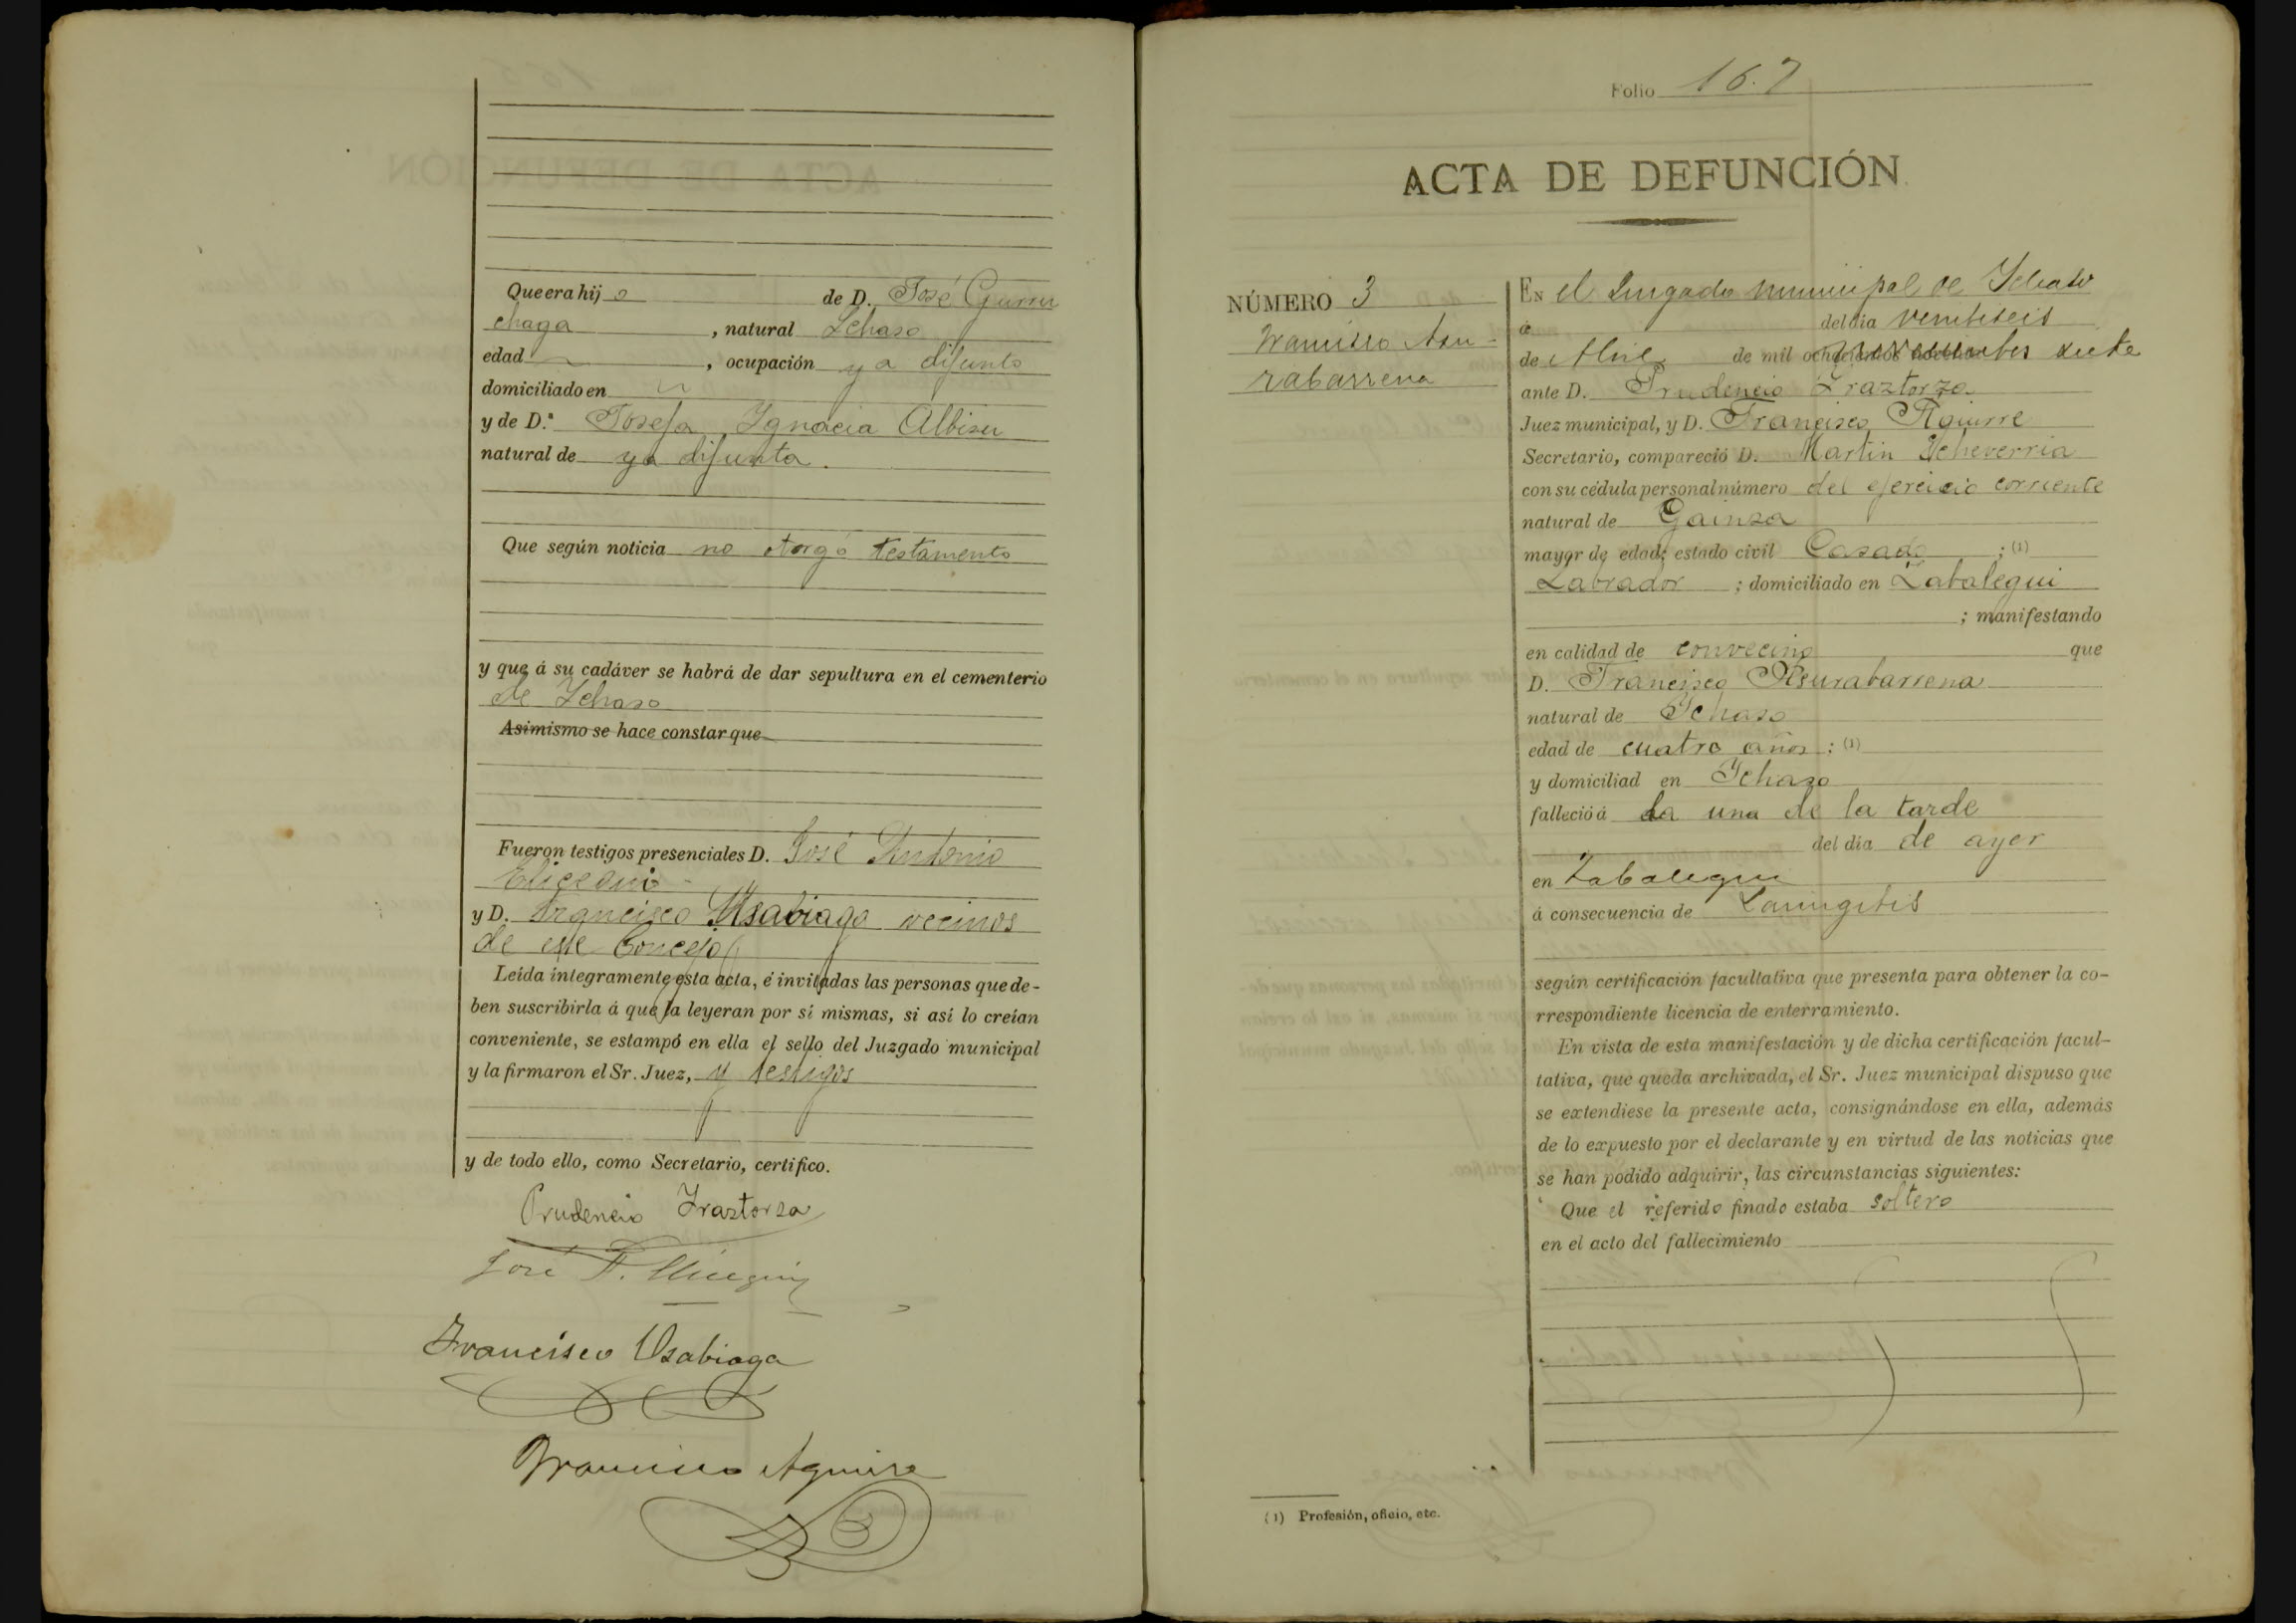 Que era hijo de D. José Gurru
chaga, natural Ichaso
edad, ocupación ya difunto
domiciliado en
y de D.ª Josefa Ignacia Albisu
natural de ya difunta.
Que según noticia no otorgó testamento
y que á su cadáver se habrá de dar sepultura en el cementerio
de Ichaso
Asimismo se hace constar que
Fueron testigos presenciales D. José Antonio
Elicegui
y D. Francisco Usabiaga vecinos
de este Concejo
Leída íntegramente esta acta, é invitadas las personas que de-
ben suscribirla á que la leyeran por sí mismas, si así lo creían
conveniente, se estampó en ella el sello del Juzgado municipal
y la firmaron el Sr. Juez, y testigos
y de todo ello, como Secretario, certifico.
Prudencio Iraztorza
José A. Elicegui
Francisco Usabiaga
Francisco Aguirre
Folio 167
ACTA DE DEFUNCIÓN
NÚMERO 3
Francisco Asu-
rabarrena
En el Jusgado municipal de Ichaso
á del dia veintiseis
de Abril de mil novecientos siete
ante D. Prudencio Iraztorza
Juez municipal, y D. Francisco Aguirre
Secretario, compareció D. Martin Echeverria
con su cédula personal número del ejercicio corriente
natural de Gainza
mayor de edad; estado civil Casado ; (1)
Labrador ; domiciliado en Zabalegui
; manifestando
en calidad de convecino que
D. Francisco Asurabarrena
natural de Ichaso
edad de cuatro años ; (1)
y domiciliad en Ichaso
falleció á la una de la tarde
del dia de ayer
en Zabalegui
á consecuencia de Laringitis
según certificación facultativa que presenta para obtener la co-
rrespondiente licencia de enterramiento.
En vista de esta manifestación y de dicha certificación facul-
tativa, que queda archivada, el Sr. Juez municipal dispuso que
se extendiese la presente acta, consignándose en ella, además
de lo expuesto por el declarante y en virtud de las noticias que
se han podido adquirir, las circunstancias siguientes:
Que el referido finado estaba soltero
en el acto del fallecimiento
(1) Profesión, oficio, etc.